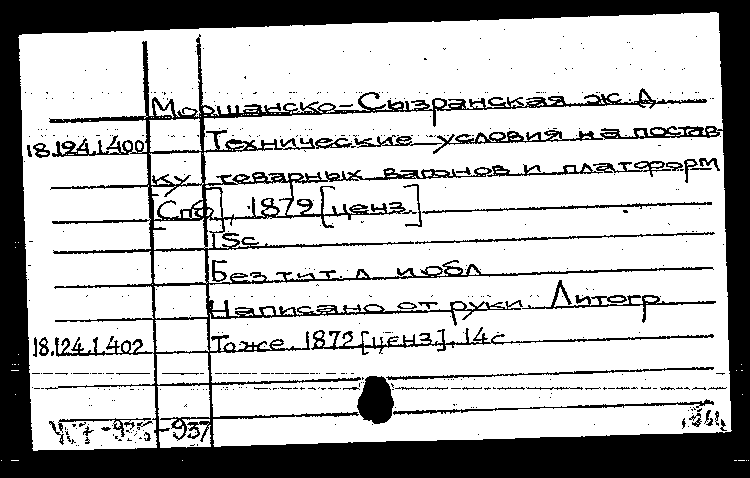 Моршанско-Сызранская ж.д.
18.124.1.400 Технические условия на постав-
ку товарных вагонов и платформ
[Спб], 1872 [ценз.]
15с.
Без тит. л. и обл.
Написано от руки. Литогр.
18.124.1.402 Тоже. 1872 [ценз.], 14с.
-937